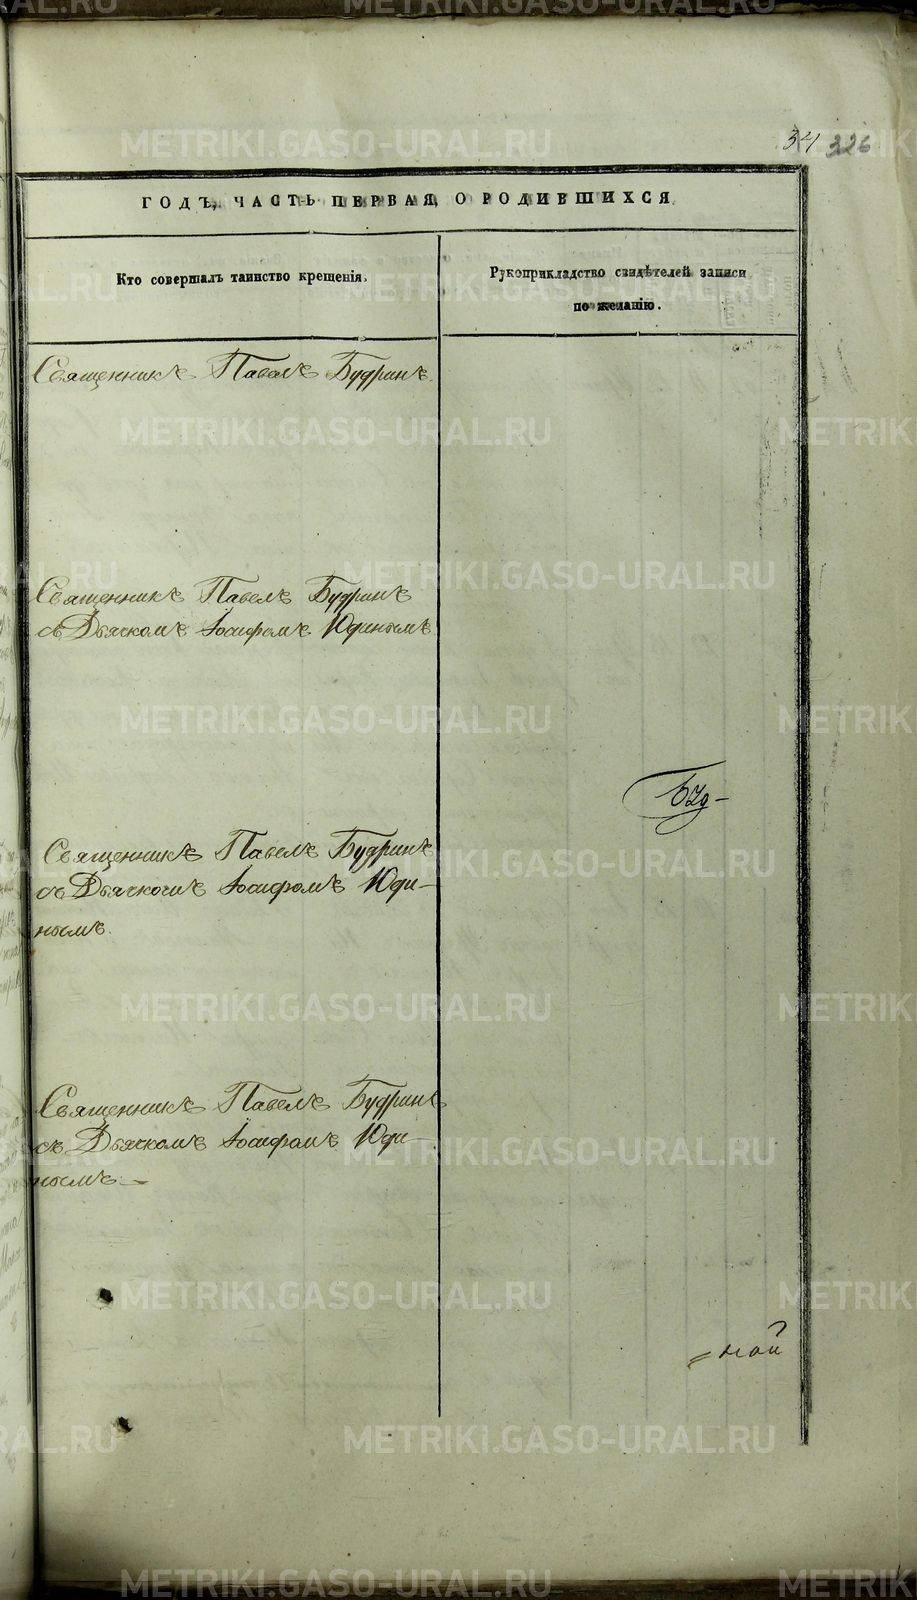 34 326
ГОДЪ, ЧАСТЬ ПЕРВАЯ, О РОДИВШИХСЯ
Кто совершалъ таинство крещенія.
Рукоприкладство свидѣтелей записи
по желанію.
Священникъ Павелъ Будринъ.
Священникъ Павелъ Будринъ
съ Дьячкомъ Іосифомъ Юдинымъ
Буд-
Священникъ Павелъ Будринъ
съ Дьячкомъ Іосифомъ Юди-
нымъ.
Священникъ Павелъ Будринъ
съ Дьячкомъ Іосифомъ Юди-
нымъ.
METRIKI.GASO-URAL.RU